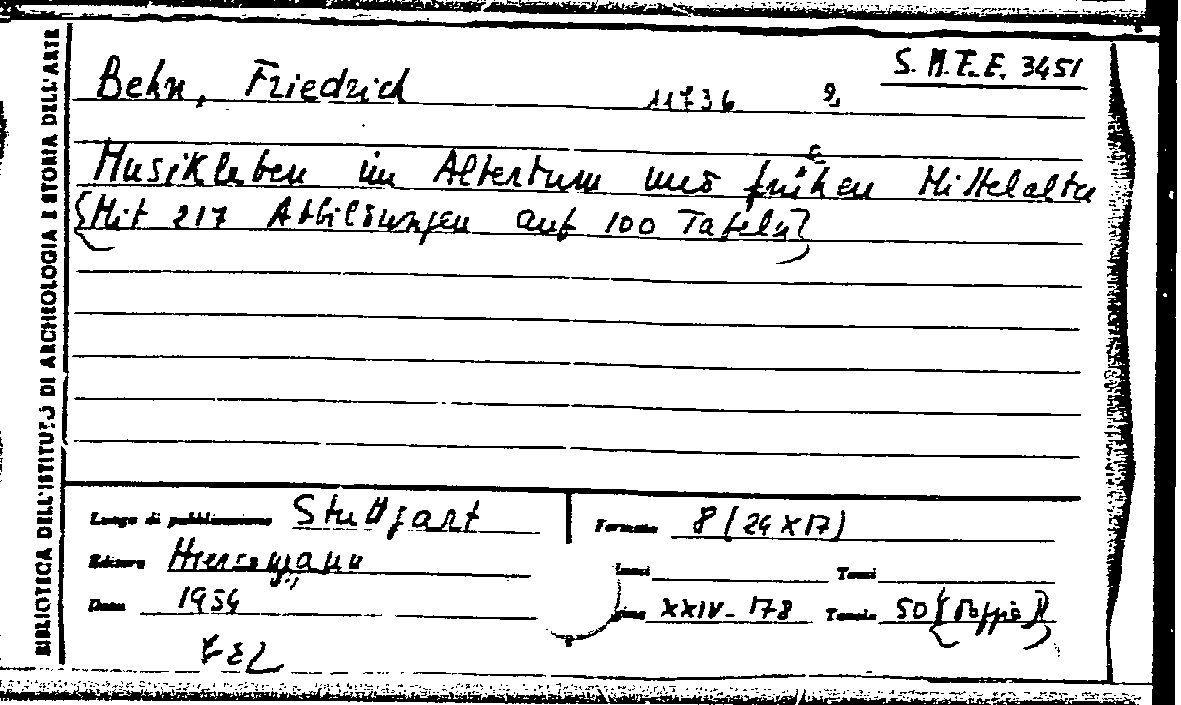 BIBLIOTECA DELL'ISTITUTO DI ARCHEOLOGIA E STORIA DELL'ARTE
S.M.E.E. 3451
Behn, Friedrich 11736
Musikleben im Altertum und frühen Mittelalter
{Mit 217 Abbildungen auf 100 Tafeln}
Luogo di pubblicazione Stuttgart
Formato 8 (24 X 17)
Editore Hiersemann
Tomi
Data 1954
XXIV - 178 Tavole 50 {doppie}